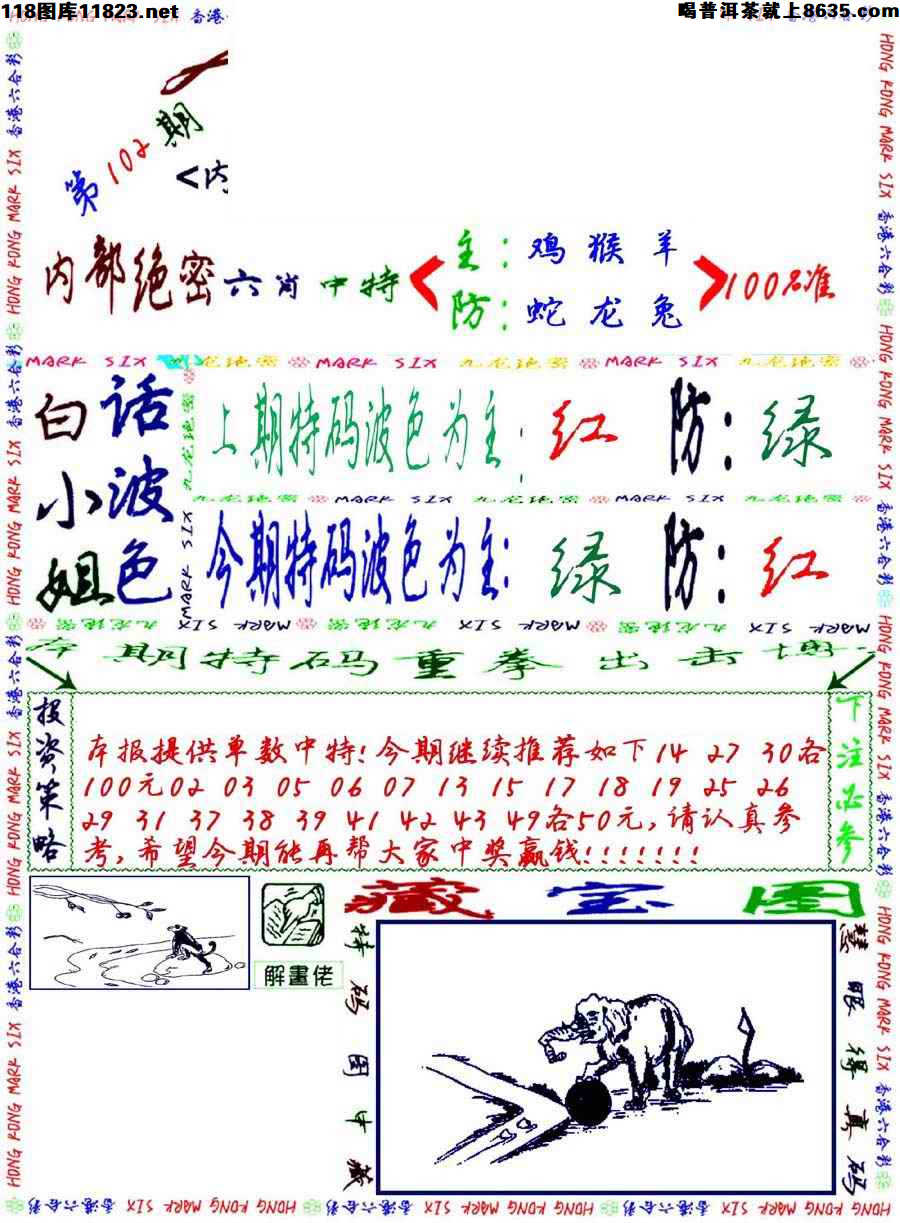 118图库11823.net
喝普洱茶就上8635.com
香港六合彩 HONG KONG MARK SIX
第102期
<内
内部绝密六肖中特
主：鸡猴羊
防：蛇龙兔
100%准
MARK SIX 九龙绝密 MARK SIX 九龙绝密 MARK SIX 九龙绝密
白小姐
话波色
上期特码波色为主：红 防：绿
九龙绝密 MARK SIX 九龙绝密 MARK SIX 九龙绝密
今期特码波色为主：绿 防：红
九龙绝密 MARK SIX 九龙绝密 MARK SIX 九龙绝密 MARK SIX
期特码重拳出击
投资策略
本报提供单数中特！今期继续推荐如下14 27 30各
100元02 03 05 06 07 13 15 17 18 19 25 26
29 31 37 38 39 41 42 43 49各50元，请认真参
考，希望今期能再帮大家中奖赢钱！！！！！！！
下注必参
解畫佬
藏宝图
特码图中藏
慧眼得真码
HONG KONG MARK SIX 香港六合彩